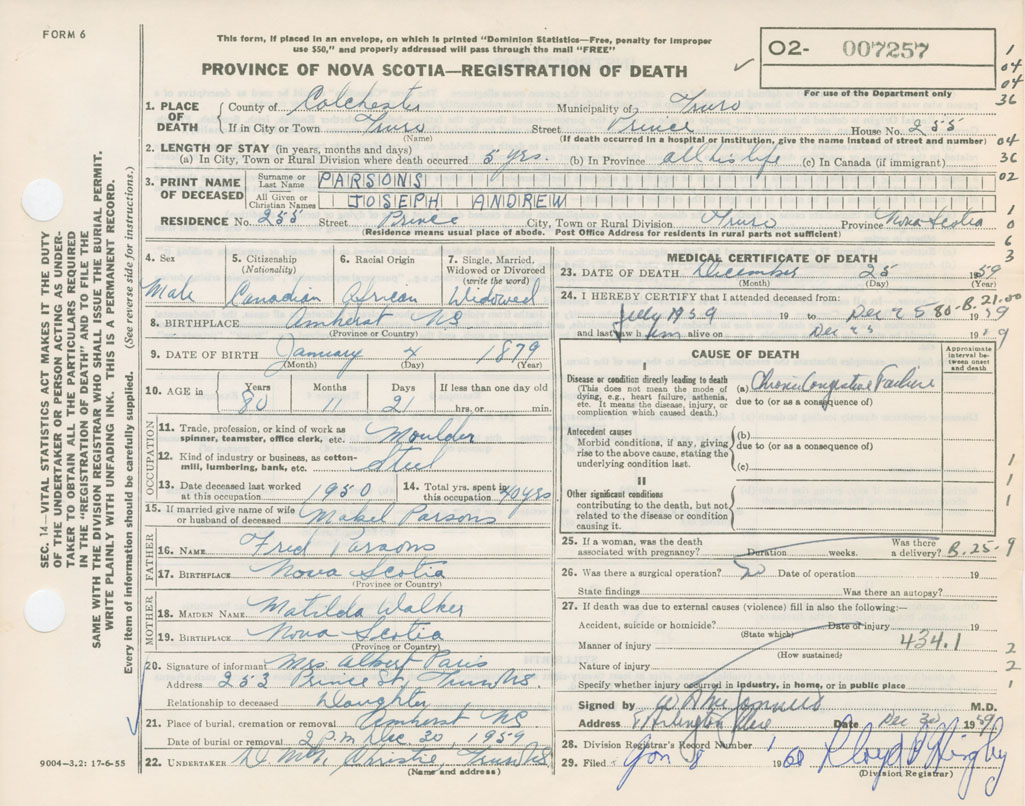 FORM 6
This form, if placed in an envelope, on which is printed "Dominion Statistics—Free, penalty for improper
use $50," and properly addressed will pass through the mail "FREE"
PROVINCE OF NOVA SCOTIA—REGISTRATION OF DEATH
O2- 007257
For use of the Department only
1. PLACE OF DEATH County of Colchester Municipality of Truro
If in City or Town Truro Street Prince House No. 255
(Name) (If death occurred in a hospital or institution, give the name instead of street and number)
2. LENGTH OF STAY (in years, months and days)
(a) In City, Town or Rural Division where death occurred 5 yrs. (b) In Province all his life (c) In Canada (if immigrant)
3. PRINT NAME OF DECEASED Surname or Last Name PARSONS
All Given or Christian Names JOSEPH ANDREW
RESIDENCE No. 255 Street Prince City, Town or Rural Division Truro Province Nova Scotia
(Residence means usual place of abode. Post Office Address for residents in rural parts not sufficient)
4. Sex Male
5. Citizenship (Nationality) Canadian
6. Racial Origin African
7. Single, Married, Widowed or Divorced (write the word) Widowed
8. BIRTHPLACE Amherst NS
(Province or Country)
9. DATE OF BIRTH January 4 1879
(Month) (Day) (Year)
10. AGE in Years 80 Months 11 Days 21 If less than one day old hrs. or min.
OCCUPATION
11. Trade, profession, or kind of work as spinner, teamster, office clerk, etc. Moulder
12. Kind of industry or business, as cotton-mill, lumbering, bank, etc. Steel
13. Date deceased last worked at this occupation 1950
14. Total yrs. spent in this occupation 40 yrs
15. If married give name of wife or husband of deceased Mabel Parsons
FATHER
16. NAME Fred Parsons
17. BIRTHPLACE Nova Scotia
(Province or Country)
MOTHER
18. MAIDEN NAME Matilda Walker
19. BIRTHPLACE Nova Scotia
(Province or Country)
20. Signature of informant Mrs Albert Paris
Address 253 Prince St, Truro NS.
Relationship to deceased Daughter
21. Place of burial, cremation or removal Amherst NS
Date of burial or removal 2 P.M Dec 30, 1959
22. UNDERTAKER Christie, Truro NS
(Name and address)
MEDICAL CERTIFICATE OF DEATH
23. DATE OF DEATH December 25 1959
(Month) (Day) (Year)
24. I HEREBY CERTIFY that I attended deceased from:
July 1959 19 to Dec 25 80-B.21.00 1959
and last saw him alive on Dec 25 1959
CAUSE OF DEATH
Approximate interval between onset and death
I
Disease or condition directly leading to death
(This does not mean the mode of dying, e.g., heart failure, asthenia, etc. It means the disease, injury, or complication which caused death.)
(a) Chronic Congestive Failure
due to (or as a consequence of)
Antecedent causes
Morbid conditions, if any, giving rise to the above cause, stating the underlying condition last.
(b)
due to (or as a consequence of)
(c)
II
Other significant conditions
contributing to the death, but not related to the disease or condition causing it.
25. If a woman, was the death associated with pregnancy? Duration weeks. Was there a delivery? B.25-9
26. Was there a surgical operation? No Date of operation 19
State findings Was there an autopsy?
27. If death was due to external causes (violence) fill in also the following:—
Accident, suicide or homicide? Date of injury 19
(State which)
Manner of injury 434.1
(How sustained)
Nature of injury
Specify whether injury occurred in industry, in home, or in public place
Signed by M.D.
Address Date Dec 30 1959
28. Division Registrar's Record Number 1
29. Filed Jan 8 1960
(Division Registrar)
9004-3.2: 17-6-55
SEC. 14—VITAL STATISTICS ACT MAKES IT THE DUTY
OF THE UNDERTAKER OR PERSON ACTING AS UNDER-
TAKER TO OBTAIN ALL THE PARTICULARS REQUIRED
IN THE "REGISTRATION OF DEATH" AND TO FILE THE
SAME WITH THE DIVISION REGISTRAR WHO SHALL ISSUE THE BURIAL PERMIT.
WRITE PLAINLY WITH UNFADING INK. THIS IS A PERMANENT RECORD.
Every item of information should be carefully supplied. (See reverse side for instructions.)
1
04
04
36
04
36
02
1
0
6
3
1
1
1
2
2
1